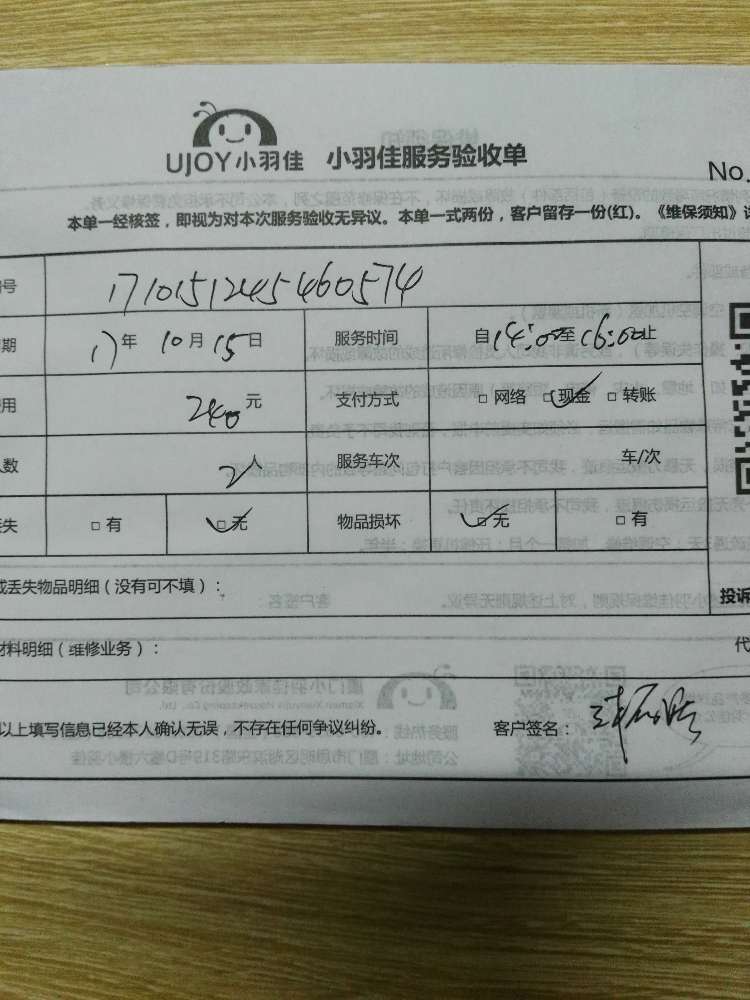 UJOY小羽佳 小羽佳服务验收单
No.
本单一经核签，即视为对本次服务验收无异议。本单一式两份，客户留存一份(红)。《维保须知》
号 1710151245460574
期 17年 10月 15日 服务时间 自14:00至16:00止
用 240元 支付方式 □ 网络 □ 现金 □ 转账
人数 2人 服务车次 车/次
失 □ 有 □ 无 物品损坏 □ 无 □ 有
或丢失物品明细（没有可不填）：
投诉
材料明细（维修业务）：
代
以上填写信息已经本人确认无误，不存在任何争议纠纷。 客户签名：